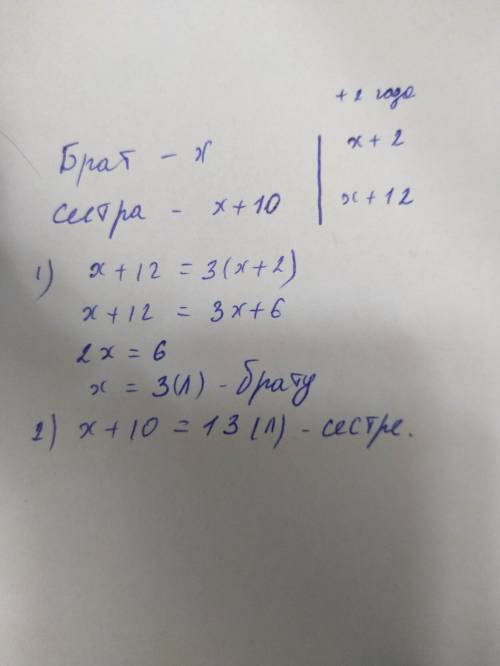 + 2 года
Брат - x | x + 2
сестра - x + 10 | x + 12
1) x + 12 = 3(x + 2)
x + 12 = 3x + 6
2x = 6
x = 3(л) - брату
2) x + 10 = 13 (л) - сестре.